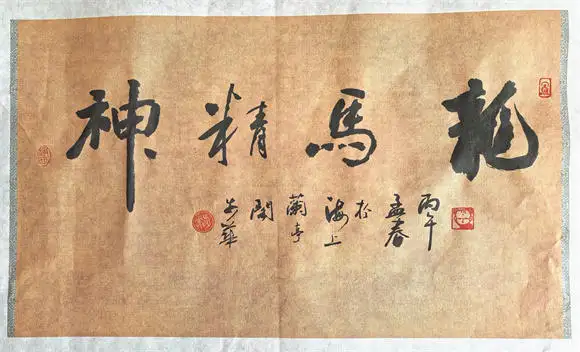 龍馬精神
丙午
孟春
於
海上
蘭亭
閣
華